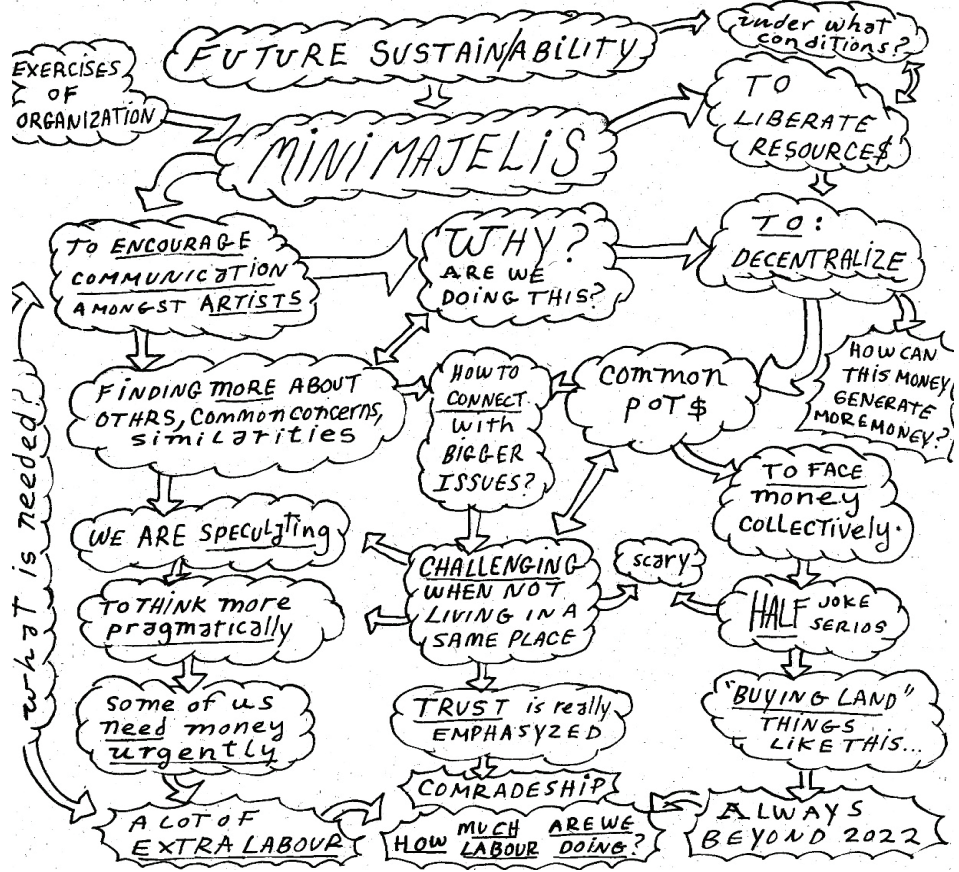 FUTURE SUSTAINABILITY
under what
conditions?
EXERCISES
OF
ORGANIZATION
MINI MAJELIS
TO
LIBERATE
RESOURCE$
TO ENCOURAGE
COMMUNICATION
AMONGST ARTISTS
WHY?
ARE WE
DOING THIS?
TO:
DECENTRALIZE
HOW CAN
THIS MONEY
GENERATE
MORE MONEY?
FINDING MORE ABOUT
OTHRS, Common concerns,
similarities
HOW TO
CONNECT
with
BIGGER
ISSUES?
common
POT $
TO FACE
money
COLLECTIVELY.
what is needed?
WE ARE SPECULating
CHALLENGING
WHEN NOT
LIVING IN A
SAME PLACE
scary
HALF JOKE
SERIOS
TO THINK more
pragmatically
some of us
need money
urgently
TRUST is really
EMPHASYZED
"BUYING LAND"
THINGS
LIKE THIS...
A LOT OF
EXTRA LABOUR
COMRADESHIP
HOW MUCH LABOUR ARE WE DOING?
ALWAYS
BEYOND 2022